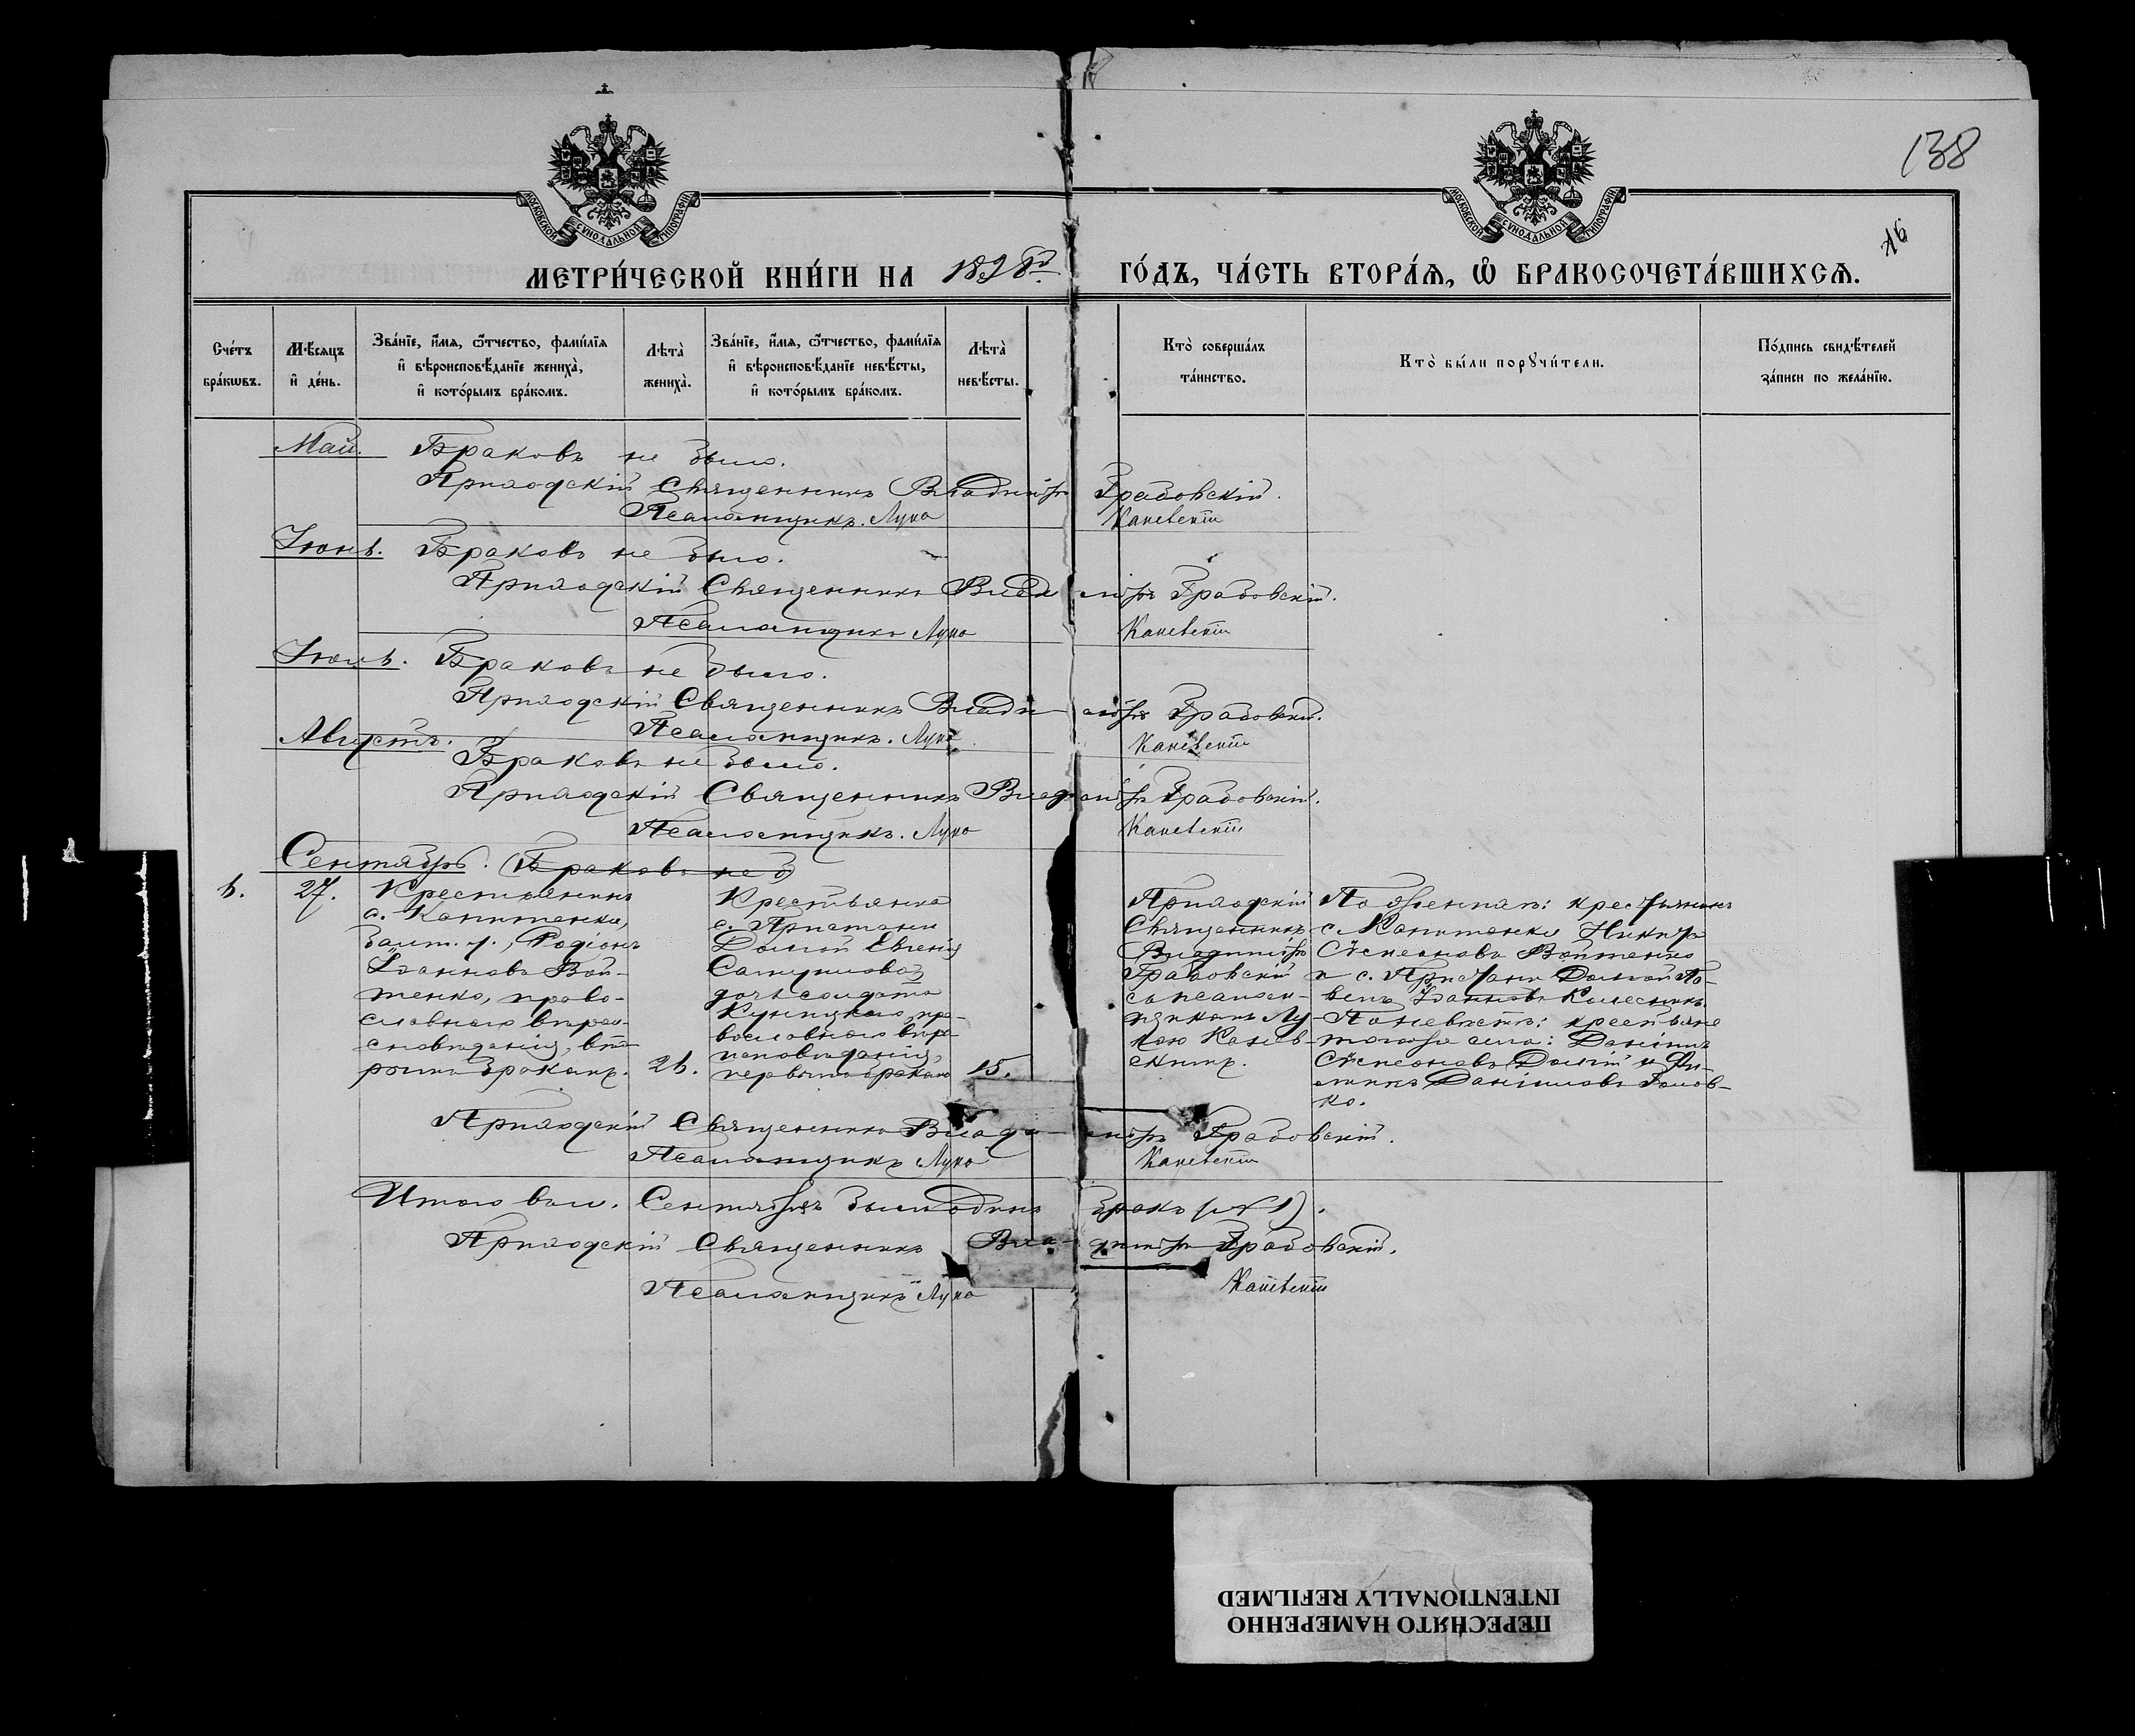 138
16
МОСКОВСКОЙ СѴНОДАЛЬНОЙ ТИПОГРАФІИ
МОСКОВСКОЙ СѴНОДАЛЬНОЙ ТИПОГРАФІИ
МЕТРИ́ЧЕСКОЙ КНИ́ГИ НА 1898й ГО́ДЪ, ЧА́СТЬ ВТОРА́Я, Ѽ БРАКОСОЧЕТА́ВШИХСЯ.
Сче́тъ бра́кѡвъ.
Мѣ́сяцъ и҆ де́нь.
Зва́нїе, и҆́мя, ѻ҆́тчество, фами́лїя и҆ вѣроисповѣ́данїе жениха̀, и҆ кото́рымъ бра́комъ.
Лѣта̀ жениха̀.
Зва́нїе, и҆́мя, ѻ҆́тчество, фами́лїя и҆ вѣроисповѣ́данїе невѣ́сты, и҆ кото́рымъ бра́комъ.
Лѣта̀ невѣ́сты.
Кто̀ соверша́лъ та́инство.
Кто̀ бы́ли порꙋчи́тели.
По́дпись свидѣ́телей за́писи по жела́нїю.
Май. Браковъ не было.
Приходскій Священникъ Владиміръ Грабовскій.
Псаломщикъ. Лука Каневскій
Іюнь. Браковъ не было.
Приходскій Священникъ Владиміръ Грабовскій.
Псаломщикъ Лука Каневскій
Іюль. Браковъ не было.
Приходскій Священникъ Владиміръ Грабовскій.
Псаломщикъ. Лука Каневскій
Августъ.
Браковъ не было.
Приходскій Священникъ Владиміръ Грабовскій.
Псаломщикъ. Лука Каневскій
Сентябрь. (Браковъ не б)
27.
Крестьянинъ
с. Капитанки,
Балт. у., Родіонъ
Іоанновъ Вой-
тенко, право-
славнаго вѣрои-
сповѣданія, вто-
рымъ бракомъ.
21.
Крестьянка
с. Пристани
Долгой Евгенія
дочь солдата
православнаго вѣро-
исповѣданія,
первымъ бракомъ
15.
Приходскій
Священникъ
Владиміръ
Грабовскій
съ псалом-
щикомъ Лу-
кою Канев-
скимъ.
По женихѣ: крестьянинъ
с. Капитанки Никита
Стефановъ Войтенко
и с. Пристани Долгой
Іоанновъ Колесникъ.
По невѣстѣ: крестьяне
того же села: Даніилъ
Данииловъ Голов-
ко.
Приходскій Священникъ Владиміръ Грабовскій.
Псаломщикъ Лука Каневскій
Итого въ м. Сентябрѣ былъ одинъ бракъ (№ 1).
Приходскій Священникъ Владиміръ Грабовскій.
Псаломщикъ Лука Каневскій
ПЕРЕСНЯТО НАМЕРЕННО
INTENTIONALLY REFILMED